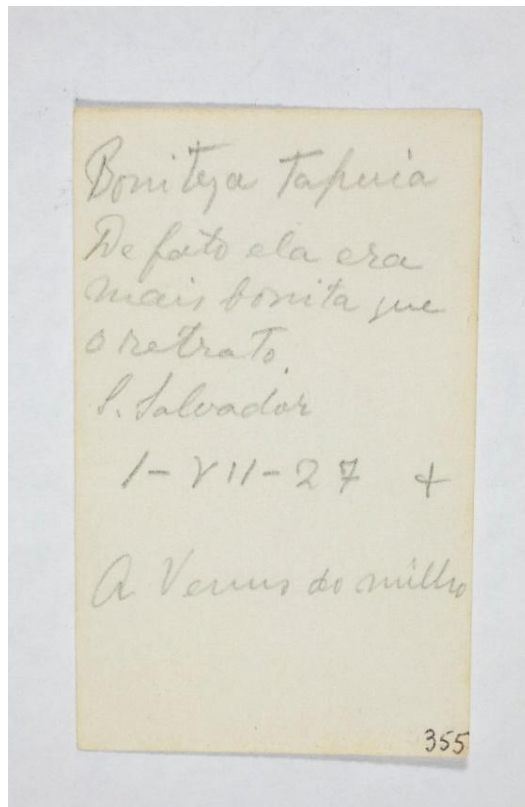 Boniteza Tapuia
De fato ela era
mais bonita que
o retrato.
S. Salvador
1-VII-27 +
A Venus do milho
355